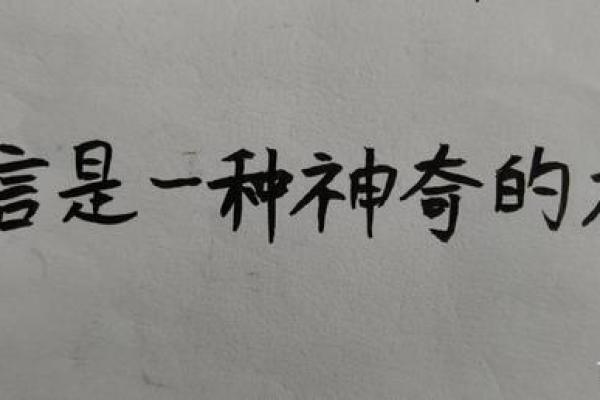 言是一种神奇的